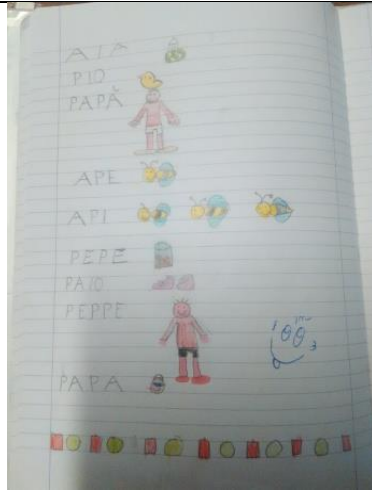 AIA
PIO
PAPÀ
APE
API
PEPE
PAIO
PEPPE
PAPA